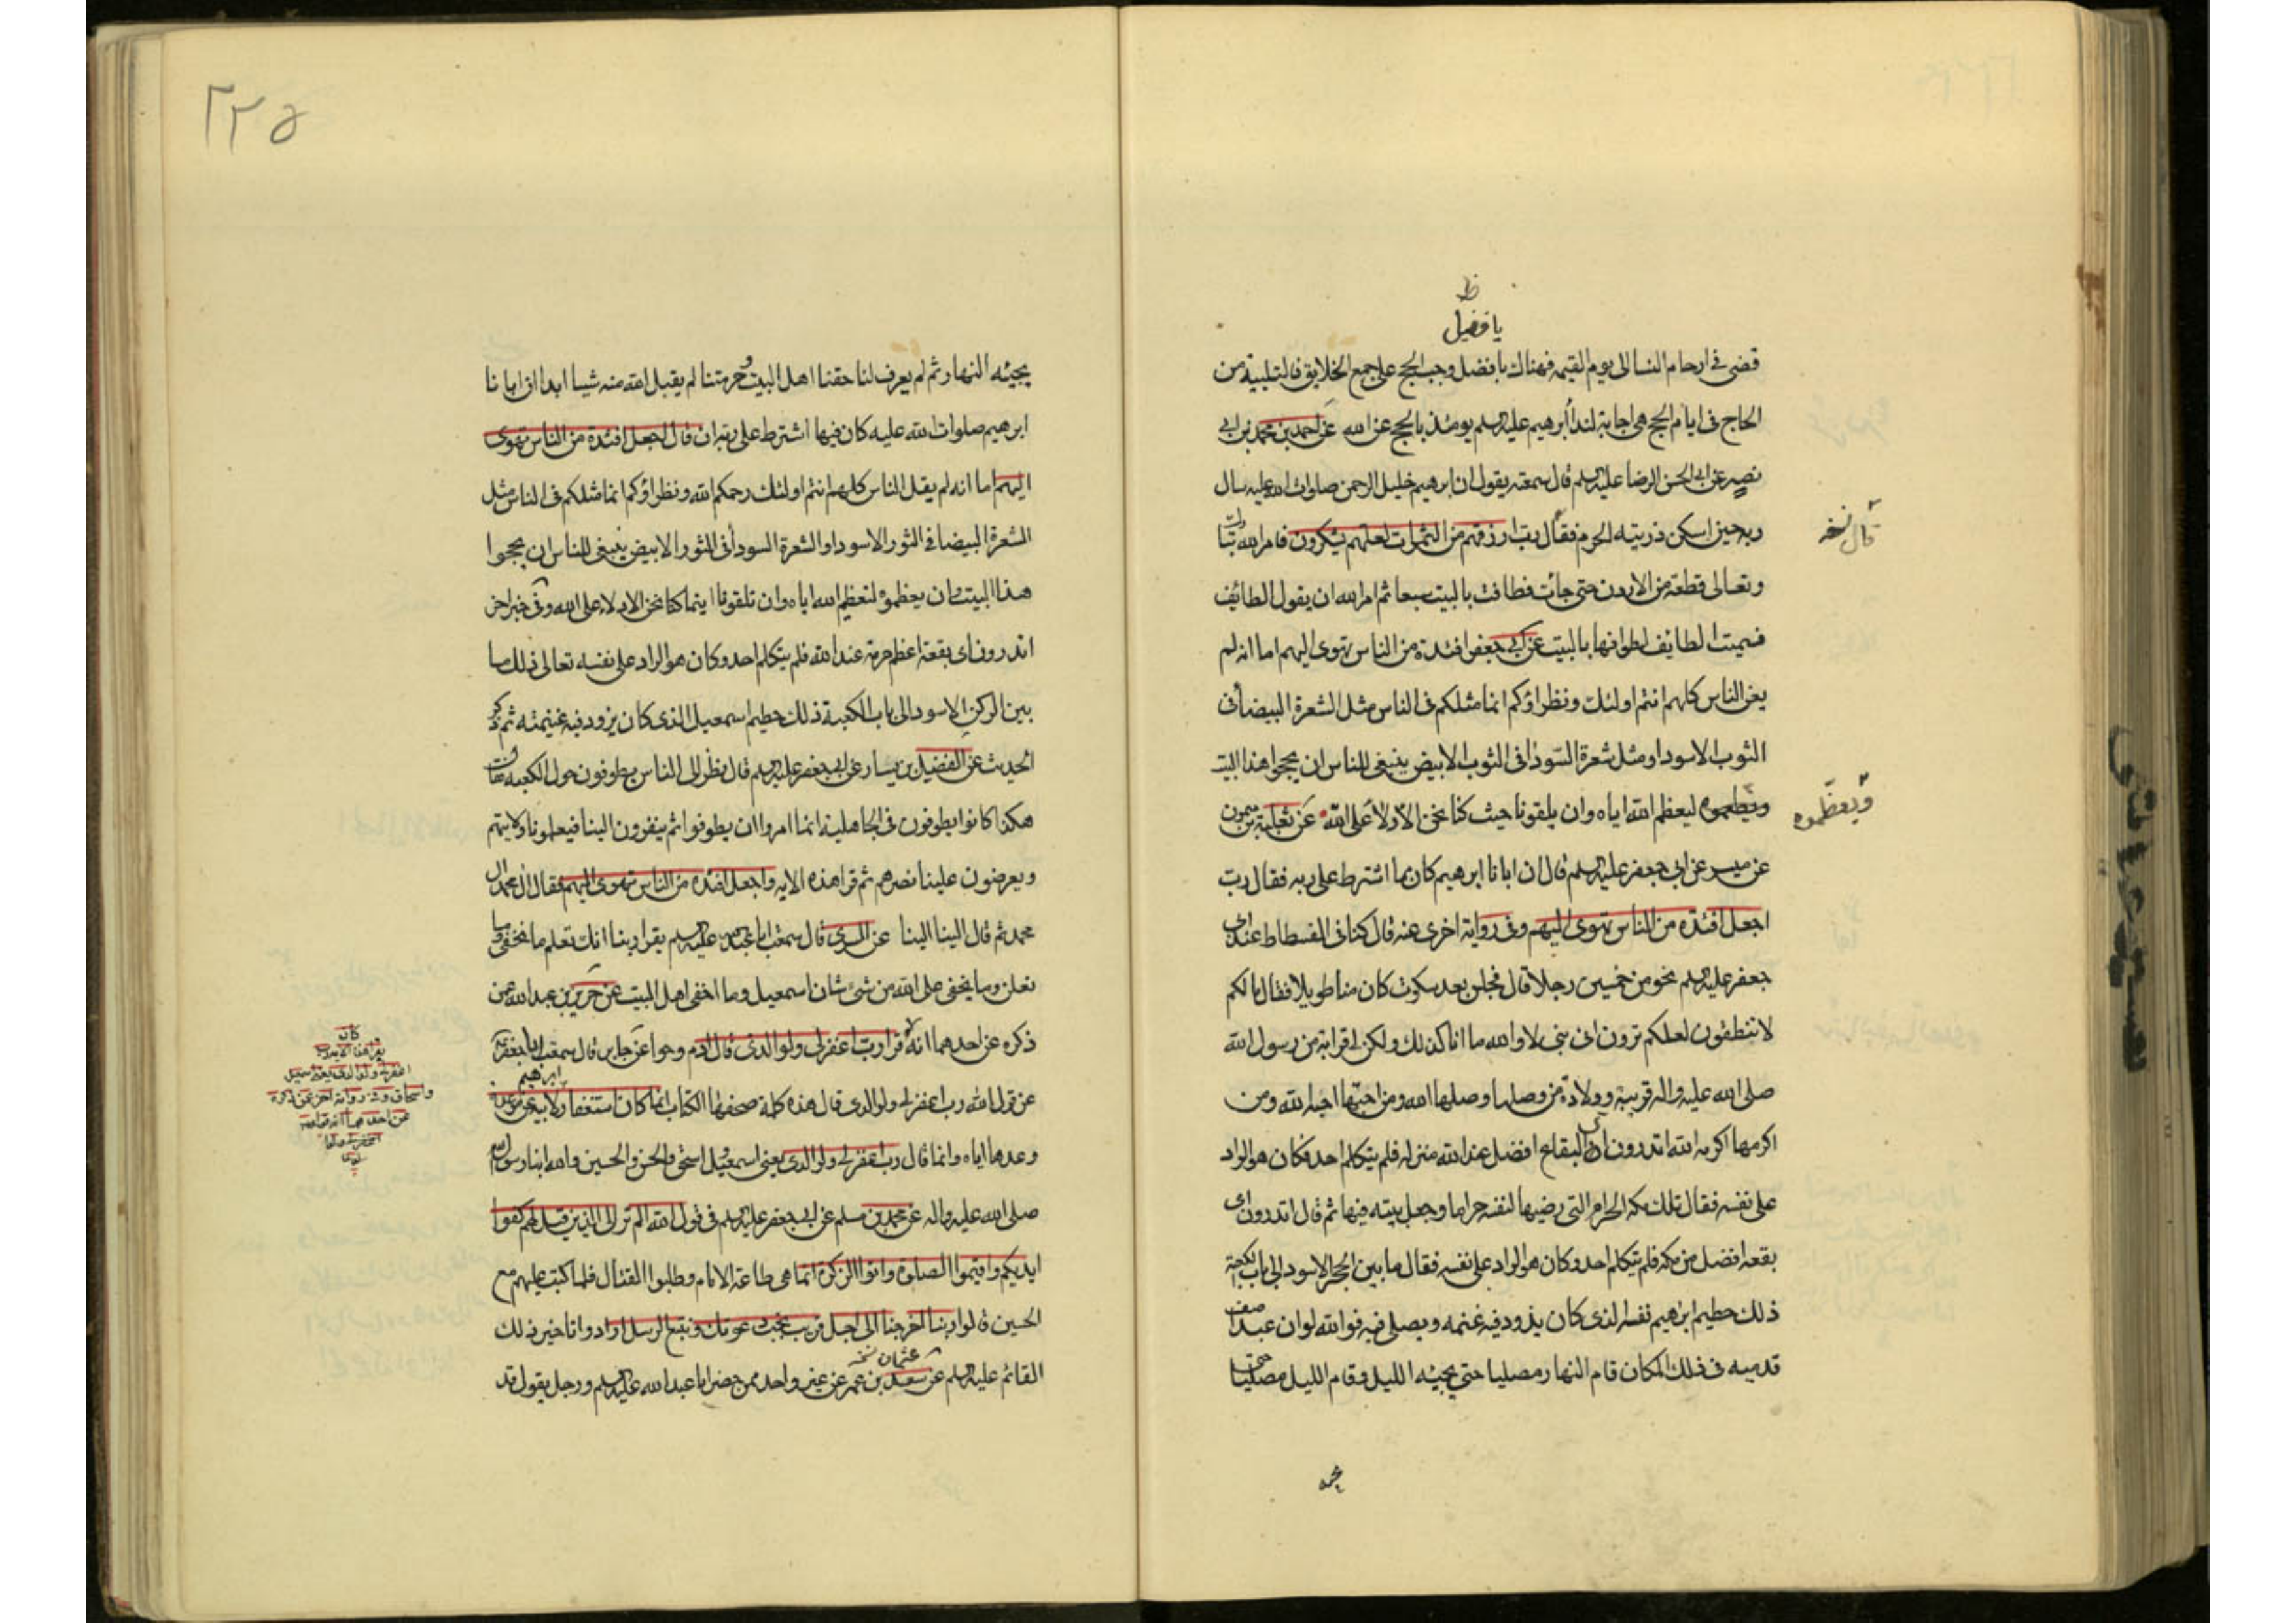 ظ
يا فضيل
قضى فى ارحام النسا الى يوم القيمه فهناك يا فضل وجب الحج على جميع الخلايق فالتلبية من
الحاج فى ايام الحج هى اجابة لندا أبرهيم عليه السلم يومئذ بالحج عن الله عن احمد بن محمد بن ابى
نصر عن ابى الحسن الرضا عليه السلم قال سمعته يقول ان ابرهيم خليل الرحمن صلوات الله عليه سال
ربه حين اسكن ذريته الحرم فقال رب ارزقهم من الثمرات لعلهم يشكرون فامر الله تبا
قال نسخه
وتعالى قطعة من الاردن حتى جائت فطافت بالبيت سبعا ثم امر الله ان يقول الطائف
فسميت الطايف لطوافها بالبيت عن ابى جعفر افئدة من الناس تهوى اليهم اما انه لم
يعن الناس كلهم انتم اولئك ونظراؤكم انما مثلكم فى الناس مثل الشعرة البيضأ فى
الثوب الاسود او مثل شعرة السودٰا فى الثوب الابيض ينبغى للناس ان يحجوا هذا البيت
ويعظموه ليعظم الله اياه وان يلقونا حيث كنا نحن الادلا على الله عن ثعلبة بن ميمون
ويعظّموه
عن ميسر عن ابى جعفر عليه السلم قال ان ابانا ابرهيم كان مما اشترط على ربه فقال رب
اجعل افئدة من الناس تهوى اليهم وفى رواية اخرى عنه قال كنا فى الفسطاط عند ابى
جعفر عليه السلم نحو من خمسين رجلا قال فجلس بعد سكوت كان منا طويلا فقال ما لكم
لا تنطقون لعلكم ترون انى نبى لا والله ما انا كذلك ولكن لى قرابة من رسول الله
صلى الله عليه واله قريبة وولادة من وصلها وصلها الله ومن احبّها احبه الله ومن
اكرمها اكرمه الله اتدرون اى البقاع افضل عند الله منزلة فلم يتكلم احد فكان هو الراد
على نفسه فقال تلك مكه الحرام التى رضيها لنفسه حراما وجعل بيته فيها ثم قال اتدرون اى
بقعه افضل من مكه فلم يتكلم احد وكان هو الراد على نفسه فقال ما بين الحجر الاسود الى باب الكعبة
ذلك حطيم ابرٰهيم نفسه الذى كان يذود فيه غنمه ويصلى فيه فوالله لو ان عبدا صف
قدميه فى ذلك المكان قام النهار مصليا حتى يجيئه الليل وقام الليل مصليا حتى
٢٢٥
يجيئه النهار ثم لم يعرف لنا حقنا اهل البيت وحرمتنا لم يقبل الله منه شيئا ابدا ان ابانا
ابرهيم صلوات الله عليه كان فيما اشترط على ربه ان قال اجعل افئدة من الناس تهوى
اليهم اما انه لم يقل الناس كلهم انتم اولئك رحمكم الله ونظراؤكم انما مثلكم فى الناس مثل
الشعرة البيضا فى الثور الاسود او الشعرة السودأ فى الثور الابيض ينبغى للناس ان يحجوا
هذا البيت وان يعظموه لتعظيم الله اياه وان تلقونا اينما كنا نحن الادلاء على الله وفى خبر اخر
اتدرون اى بقعة اعظم حرمة عند الله فلم يتكلم احد وكان هو الراد على نفسه تعالى ذلك ما
بين الركن الاسود الى باب الكعبة ذلك حطيم اسمعيل الذى كان يزود فيه غنيمته ثم ذكر
الحديث عن الفضيل بن يسار عن ابى جعفر عليه السلم قال نظر الى الناس يطوفون حول الكعبه فقال
هكذا كانوا يطوفون فى الجاهلية انما امروا ان يطوفوا ثم ينفرون الينا فيعلمونا ولايتهم
ويعرضون علينا نصرهم ثم قرا هذه الايه واجعل افئدة من الناس تهوى اليهم فقال ال محمد ال
محمد ثم قال الينا الينا عن السدى قال سمعت ابا عبد الله عليه السلم يقرا ربنا انك تعلم ما نخفى وما
نعلن وما يخفى على الله من شىء شان اسمعيل وما اخفى اهل البيت عن حريز بن عبدالله عمن
ذكره عن احدهما انه قرا رب اغفر لى ولوالدى قال ادم وحوا عن جابر قال سمعت ابا جعفر
عن قول الله رب اغفر لى ولوالدى قال هذه كلمة صحفها الكتاب انما كان استغفار ابرهيم لابيه عن موعدة
وعدها اياه وانما قال رب اغفر لى ولوالدى يعنى اسمعيل واسحق والحسن والحسين والله ابنا رسول الله
صلى الله عليه واله عن محمد بن مسلم عن ابى جعفر عليه السلم فى قول الله الم تر الى الذين قيل لهم كفوا
ايديكم واقيموا الصلوة واتوا الزكوة انما هى طاعة الامام وطلبوا القتال فلما كتب عليهم مع
الحسين قالوا ربنا اخرجنا الى اجل قريب نجب دعوتك ونتبع الرسل اراد وا تاخير ذلك
القائم عليه السلم عن سعد بن عمر عن غير واحد ممن حضر ابا عبدالله عليه السلم ورجل يقول قد
عثمان نسخه
كان
يقرا هذه الاية رب
اغفر لى ولولدى يعنى اسمعيل
واسحاق وفى رواية اخرى عمن ذكره
عن احدهما انه قرا رب
اغفر لى ولوالدى